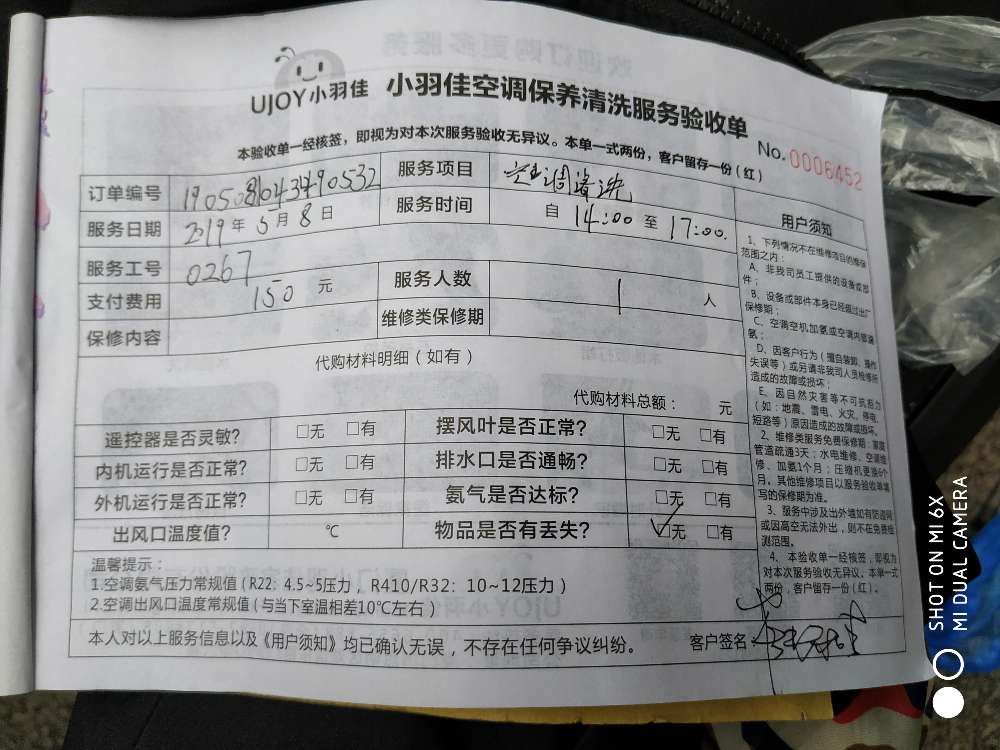 UJOY小羽佳 小羽佳空调保养清洗服务验收单
本验收单一经核签，即视为对本次服务验收无异议。本单一式两份，客户留存一份（红）
No. 0006452
订单编号 服务项目 空调清洗
服务日期 2019年5月8日 服务时间 自 14:00 至 17:00.
服务工号 0267 服务人数 1 人
支付费用 150 元 维修类保修期
保修内容
代购材料明细（如有）
代购材料总额： 元
遥控器是否灵敏? □无 □有 摆风叶是否正常? □无 □有
内机运行是否正常? □无 □有 排水口是否通畅? □无 □有
外机运行是否正常? □无 □有 氨气是否达标? □无 □有
出风口温度值? ℃ 物品是否有丢失? ☑无 □有
温馨提示：
1.空调氨气压力常规值（R22：4.5~5压力，R410/R32：10~12压力）
2.空调出风口温度常规值（与当下室温相差10℃左右）
本人对以上服务信息以及《用户须知》均已确认无误，不存在任何争议纠纷。 客户签名：
用户须知
1、下列情况不在维修项目的维保
范围之内：
A、非我司员工提供的设备或部
件；
B、设备或部件本身已经超过出厂
保修期；
C、空调空机加氨或空调内管漏
氨；
D、因客户行为（擅自装卸、操作
失误等）或另请非我司人员检修所
造成的故障或损坏；
E、因自然灾害等不可抗拒力
（如：地震、雷电、火灾、停电、
短路等）原因造成的故障或损坏。
2、维修类服务免费保修期：家庭
管道疏通3天；水电维修、空调维
修、加氨1个月；压缩机更换6个
月。其他维修项目以服务验收单填
写的保修期为准。
3、服务中涉及出外墙如有防盗网
或因高空无法外出，则不在免费检
测范围。
4、本验收单一经核签，即视为
对本次服务验收无异议。本单一式
两份，客户留存一份（红）。
SHOT ON MI 6X
MI DUAL CAMERA